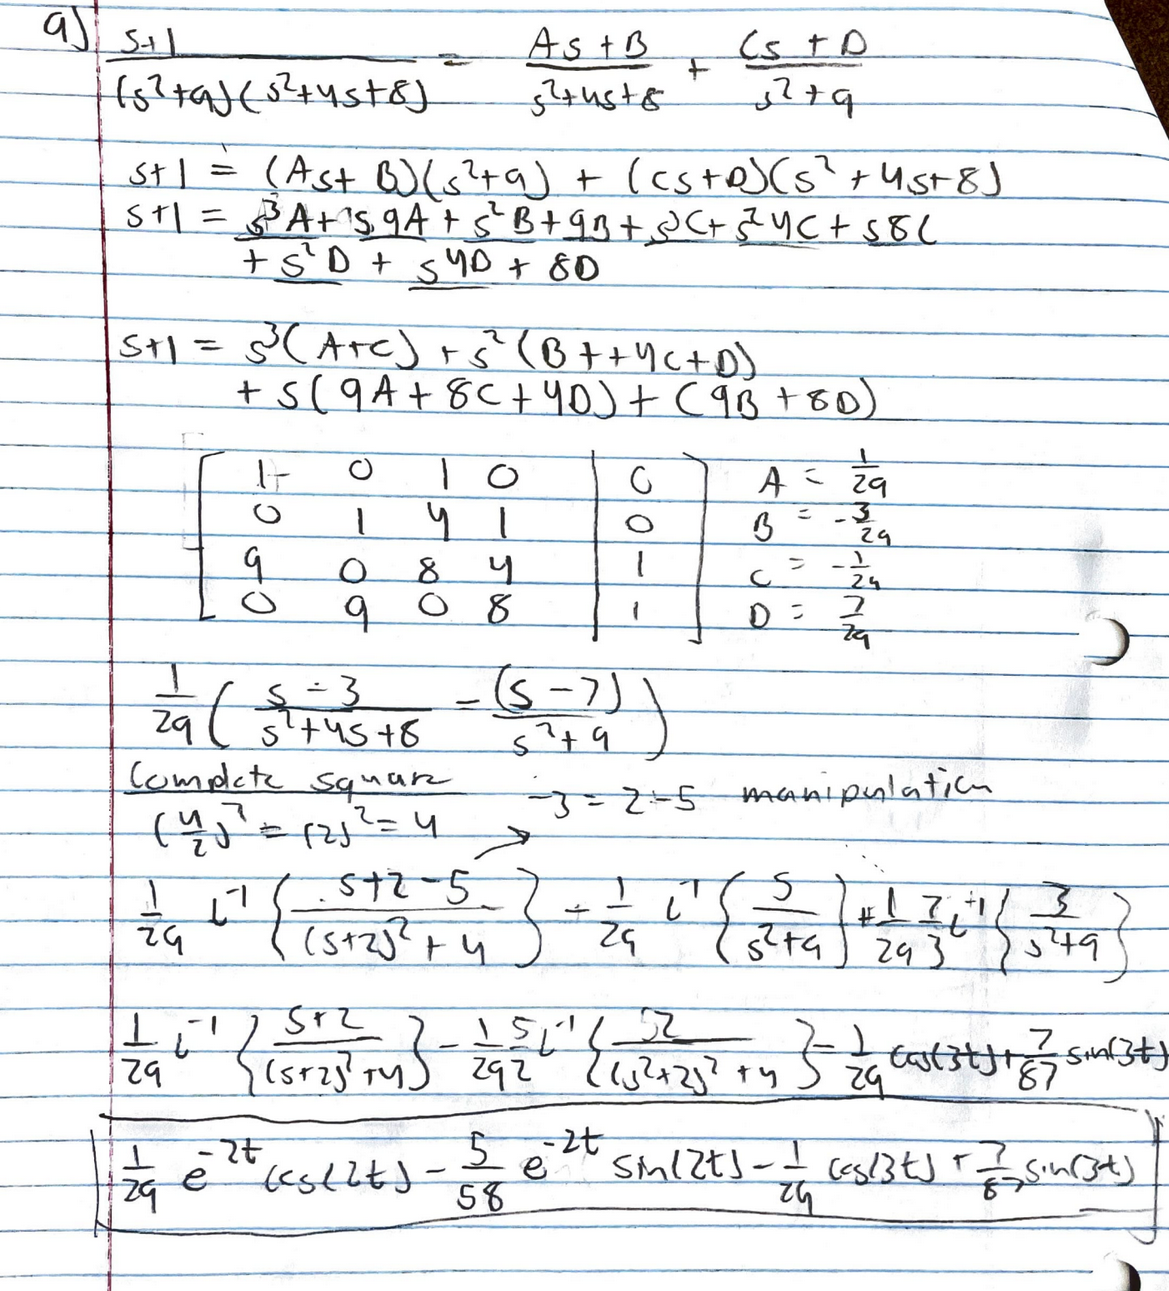 a) s+1 / (s²+9)(s²+4s+8) = As+B / s²+4s+8 + Cs+D / s²+9
s+1 = (As+B)(s²+9) + (Cs+D)(s²+4s+8)
s+1 = s³A + s9A + s²B + 9B + s³C + s²4C + s8C
+ s²D + s4D + 8D
s+1 = s³(A+C) + s²(B++4C+D)
+ s(9A+8C+4D) + (9B+8D)
[ 1 0 1 0 | 0 ] A = 1/29
0 1 4 1 | 0 B = -3/29
9 0 8 4 | 1 C = -1/29
0 9 0 8 | 1 D = 7/29
1/29 ( s-3 / s²+4s+8 - (s-7) / s²+9 )
Complete square
-3 = 2-5 manipulation
(4/2)² = (2)² = 4
1/29 L⁻¹ { s+2-5 / (s+2)²+4 } - 1/29 L⁻¹ { s / s²+9 } + 1/29 7/3 L⁻¹ { 3 / s²+9 }
1/29 L⁻¹ { s+2 / (s+2)²+4 } - 1/29 5/2 L⁻¹ { 2 / (s²+2)²+4 } - 1/29 cos(3t) + 7/87 sin(3t)
1/29 e^-2t cos(2t) - 5/58 e^-2t sin(2t) - 1/29 cos(3t) + 7/87 sin(3t)